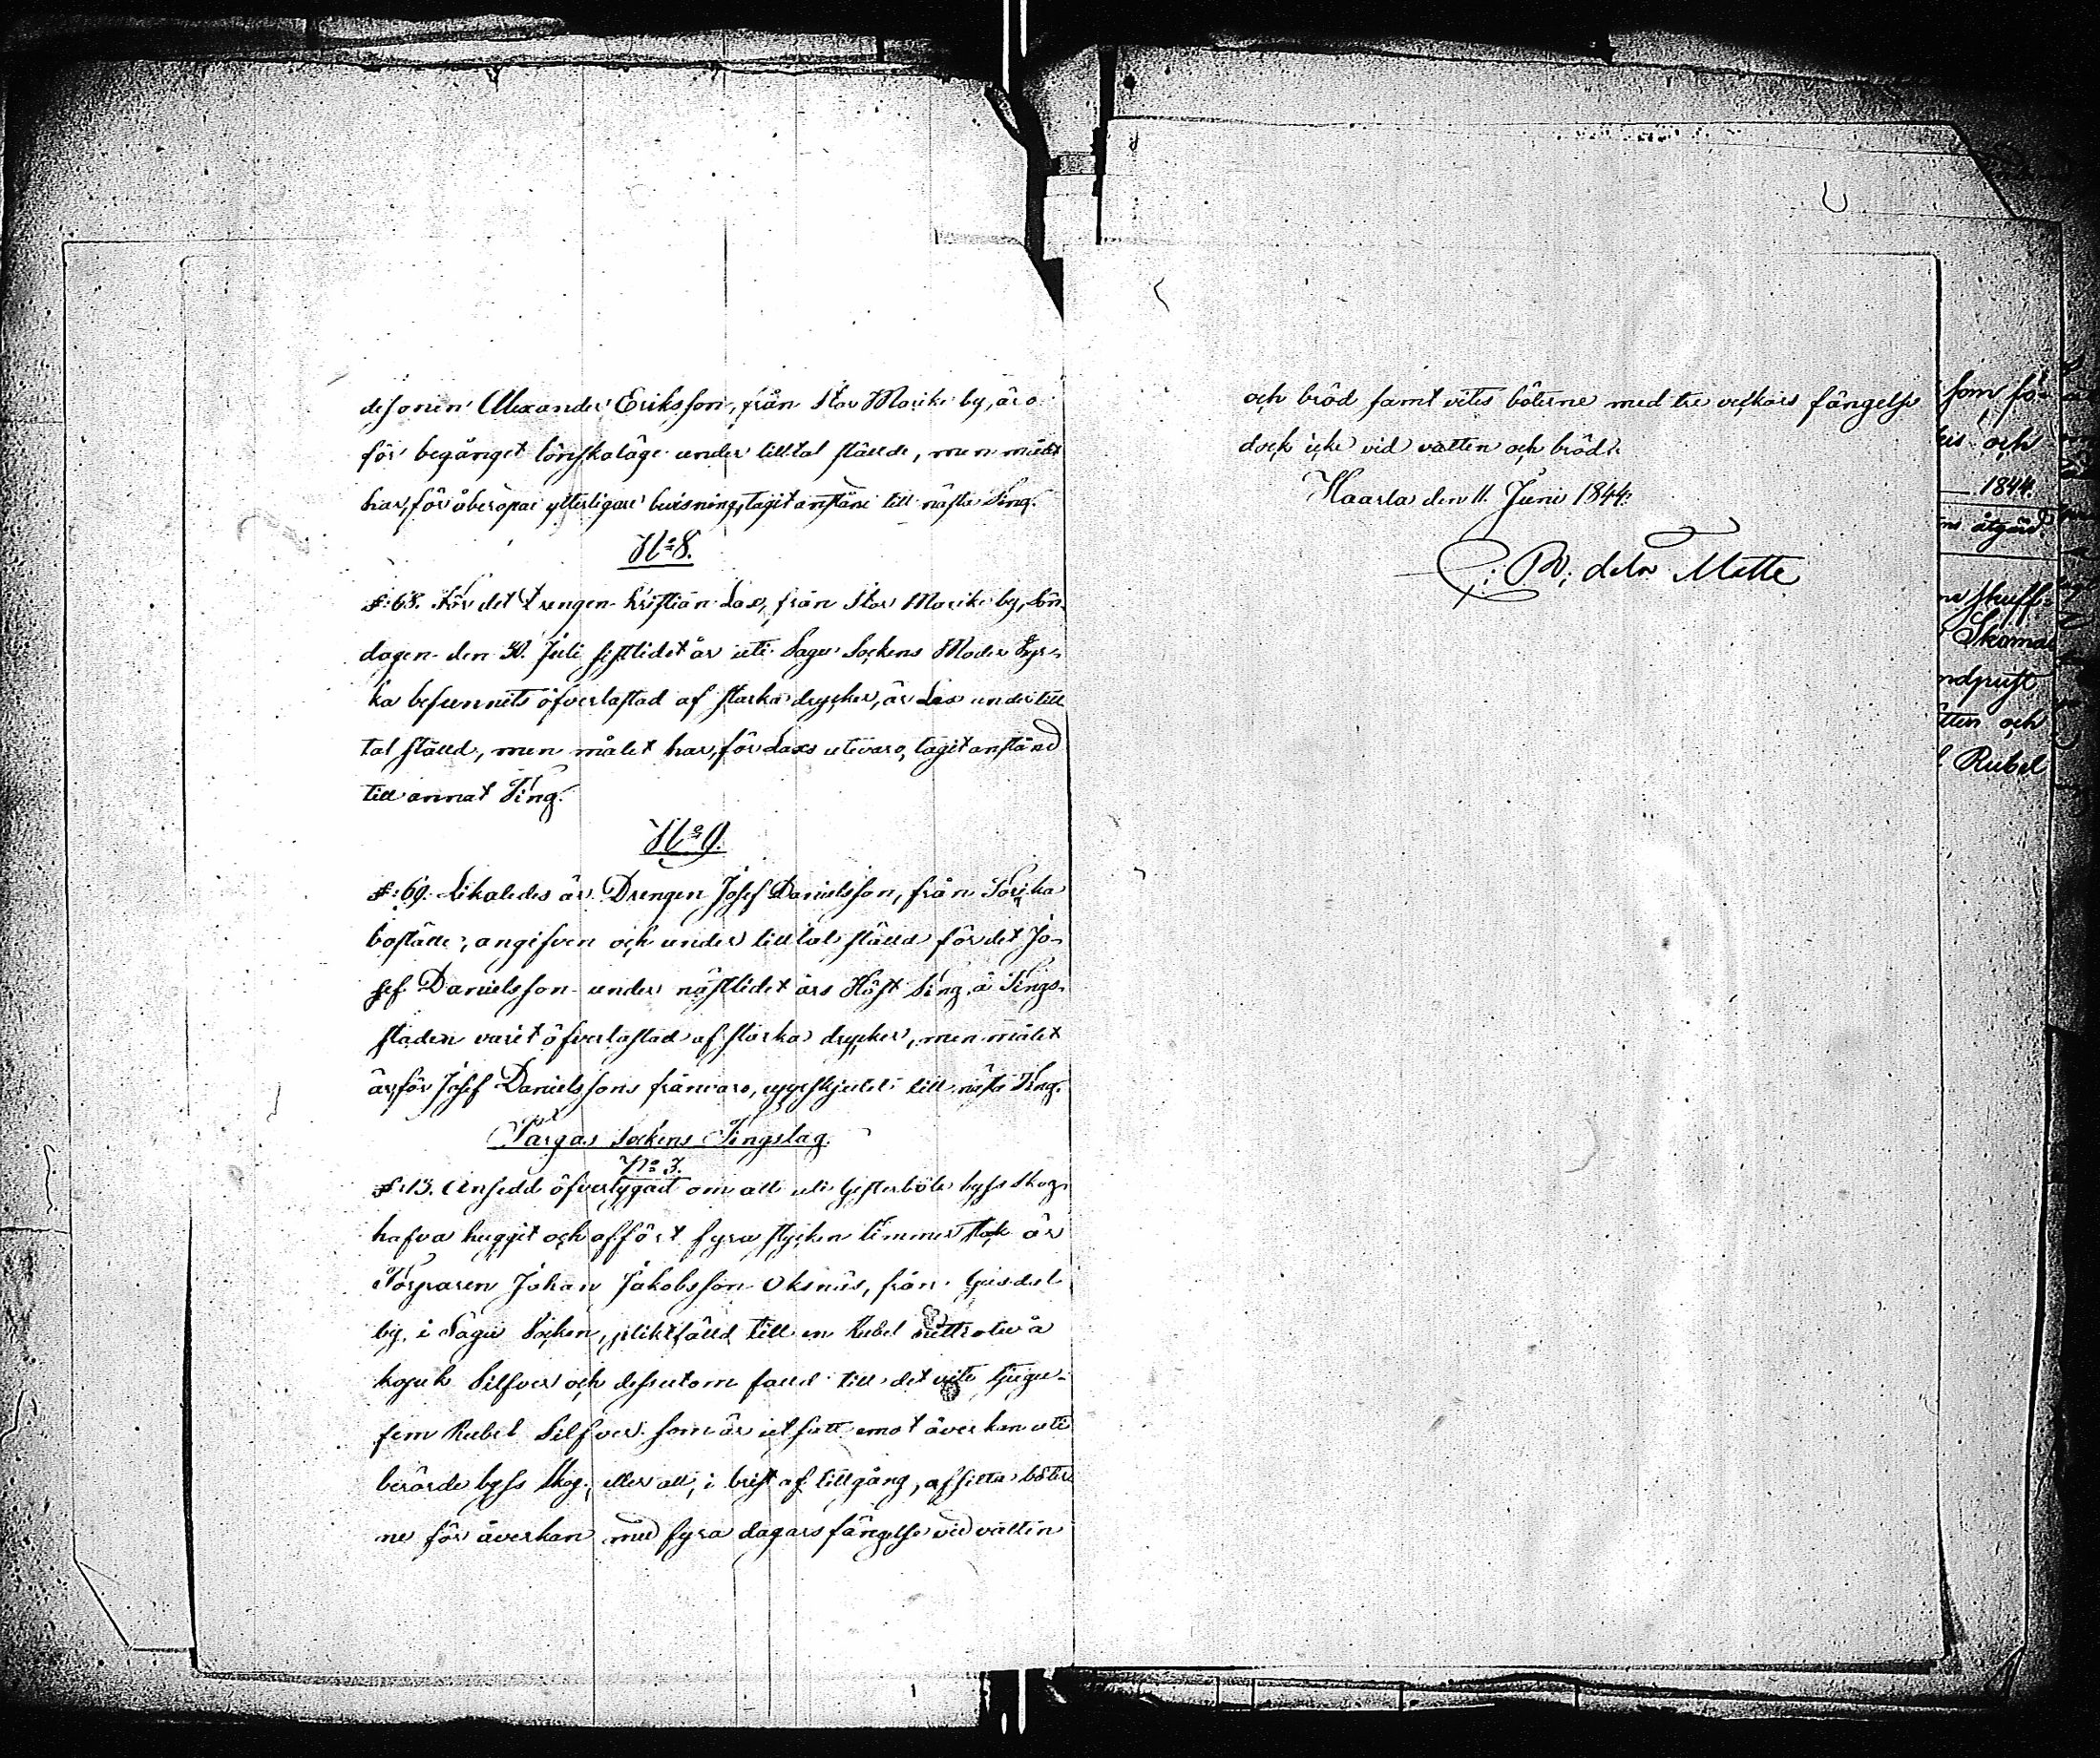 desonen Alexander Eriksson, från Stor Morike by, äro
för begånget lönskaläge under tilltal stälde, men målet
har, för åberopad ytterligare bevisning, tagit anstånd till nästa Ting.
No 8.
§: 68. För det Drengen Kristian Lax, från Stor Morike by, Sön-
dagen den 30. Juli sistlidet år uti Sagu Sockens Moder Kyr-
ka befunnits öfverlastad af starka drycker, är Lax under till
tal stäld, men målet har, för Laxs utevaro, tagit anstånd
till annat Ting.
No 9.
§: 69. Likaledes är Drengen Josef Danielsson, från
boställe, angifven och under tilltal stäld för det Jo-
sef Danielsson under nästlidet års Höst Ting å Tings-
staden varit öfverlastad af starka drycker, men målet
är, för Josef Danielssons frånvaro, uppskjutet till nästa Ting.
Pargas Sockens Tingslag.
No 3.
§: 13. Ansedd öfvertygad om att uti Gesterböle byss Skog
hafva huggit och affört fyra stycken timmer stock är
Torparen Johan Jakobsson Oksnäs, från
by, i Sagu Socken, pliktfälld till en Rubel sjuttiotvå
kopek Silfver och dessutom fälld till det vite tjugu-
fem Rubel Silfver som är utsatt emot åverkan uti
berörde byss Skog, eller att, i brist af tillgång, afsitta böter-
ne för åverkan med fyra dagars fängelse vid vatten
och bröd samt vites böterne med tre veckors fängelse
dock icke vid vatten och bröd.
Haarla den 11. Juni 1844.
som för
och
1844.
åtgärd.
Skoma
och
Rubel